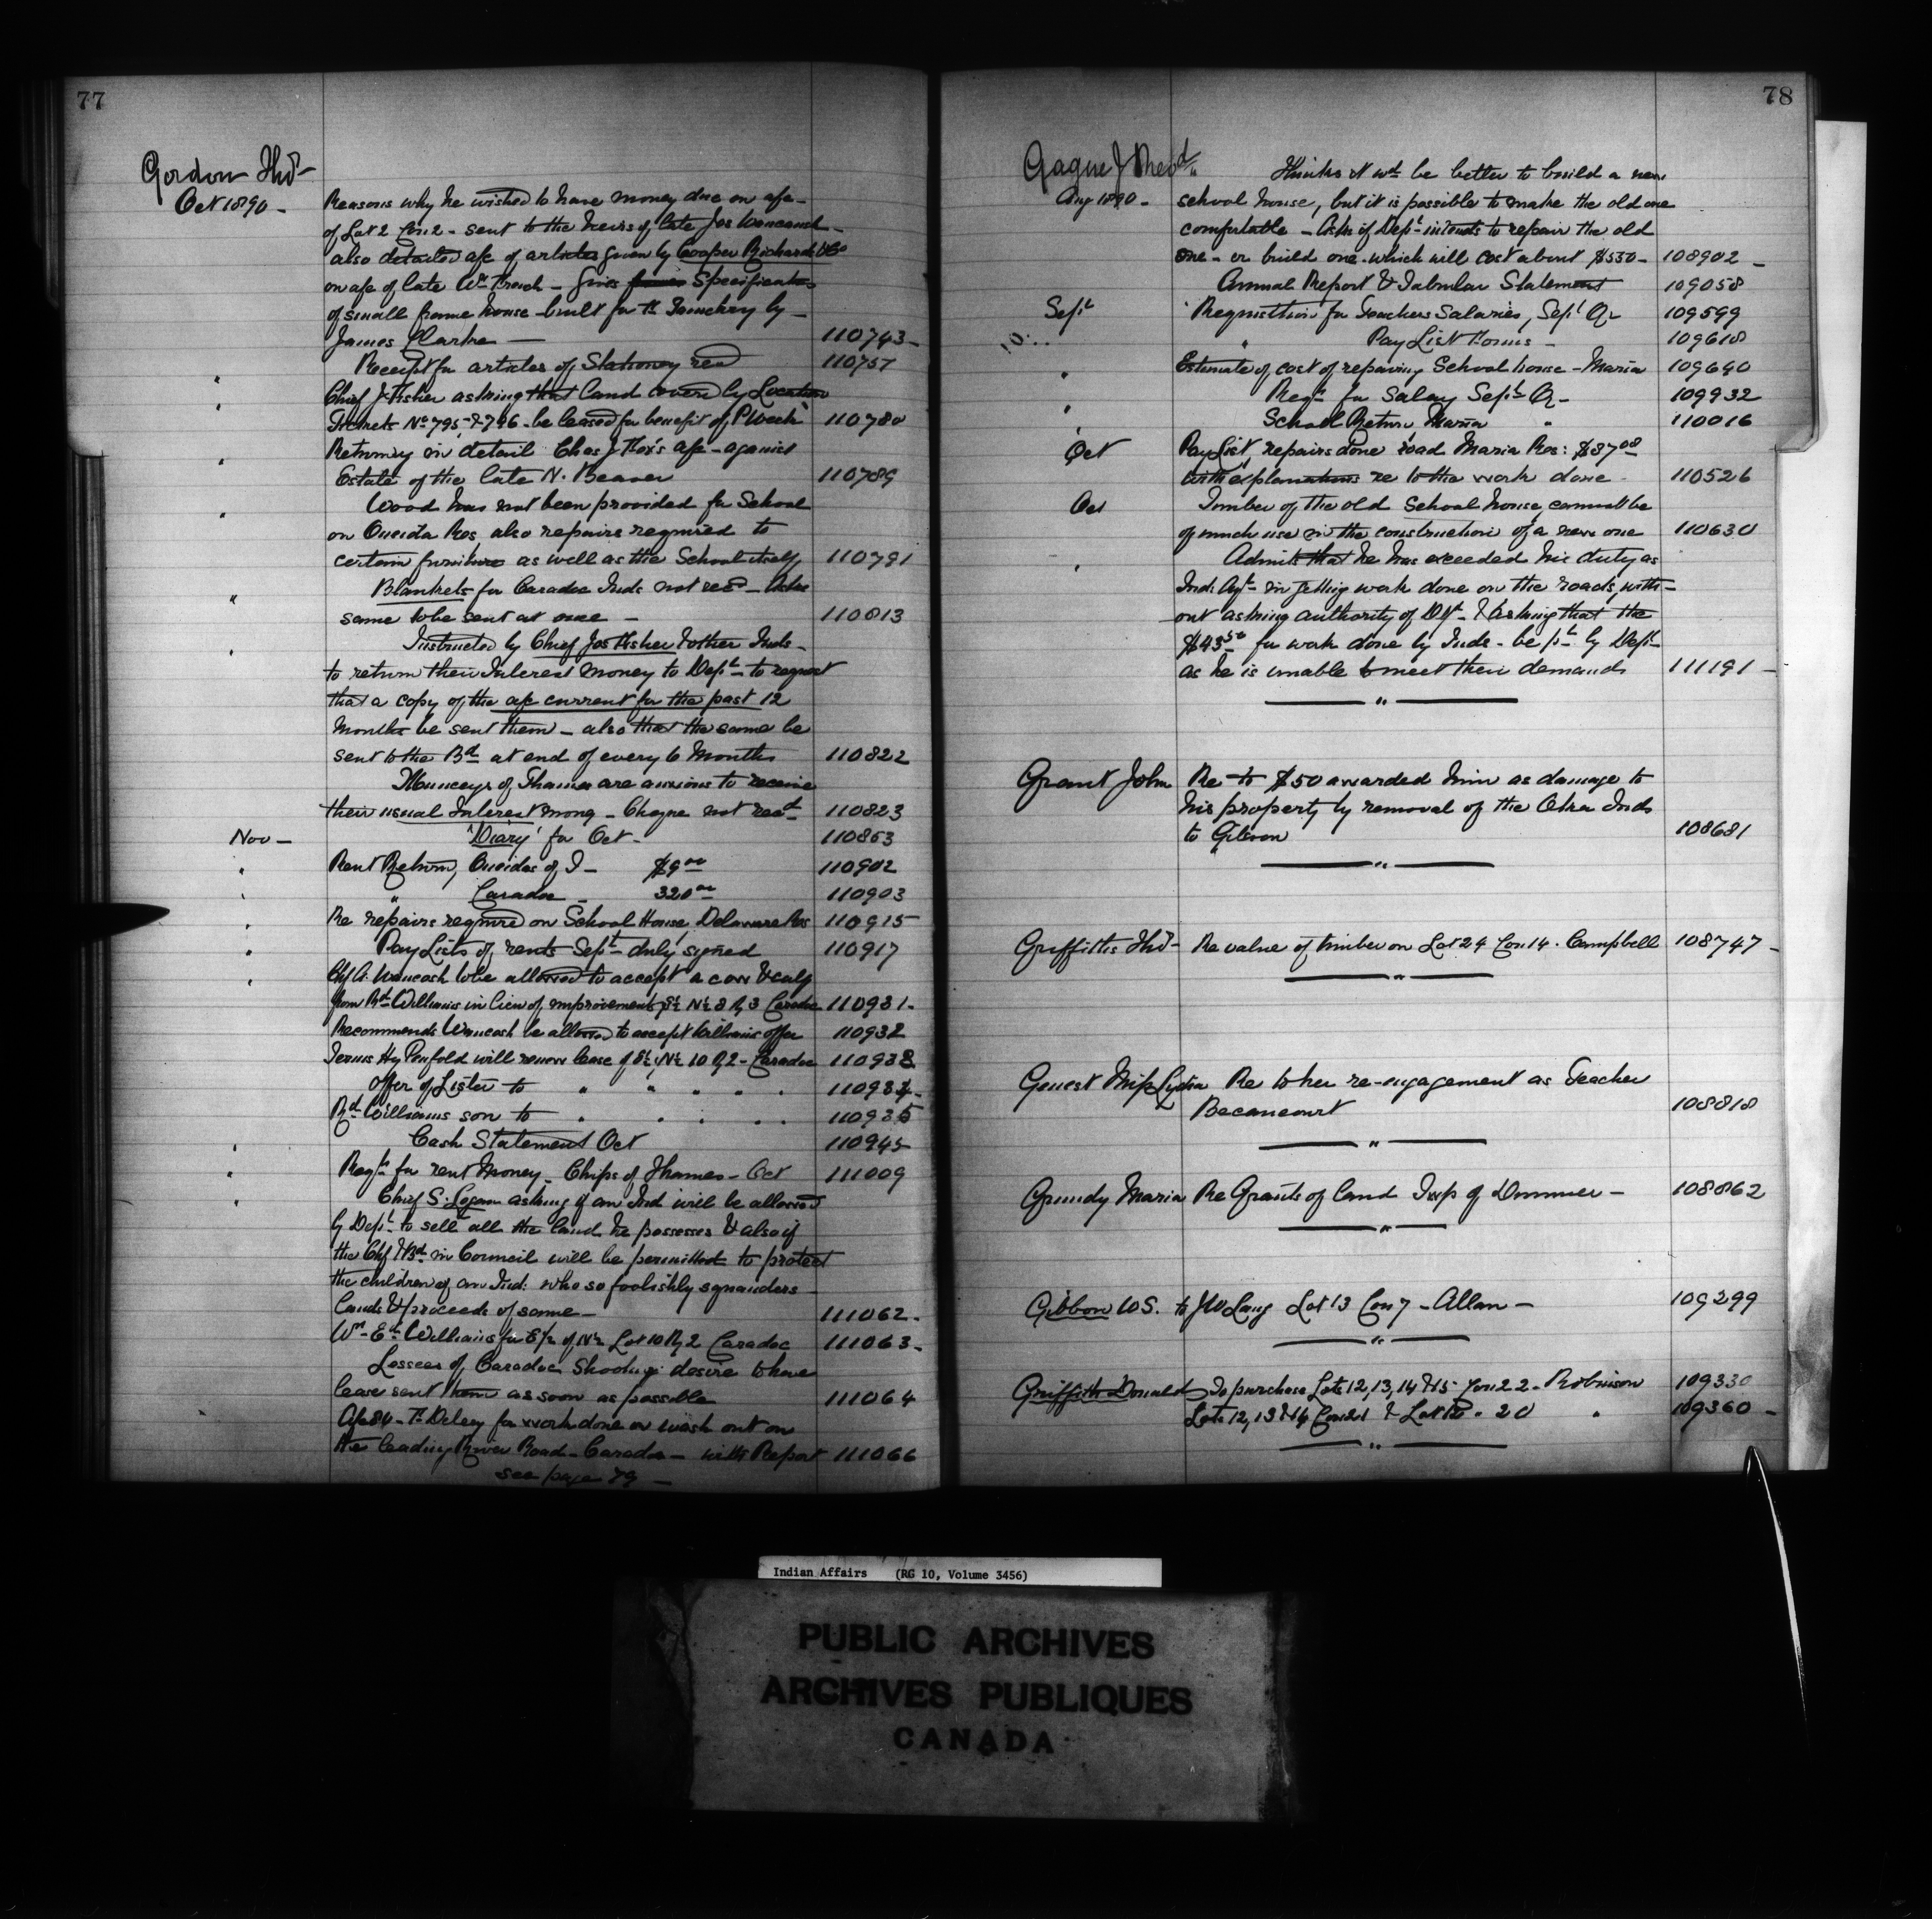 77
Gordon Thos
Oct 1890 -
Reasons why he wished to have money due on a/c -
of Lot 2 Con 2 - sent to the heirs of late Jos Wancaush -
also detailed a/c of articles given by Cooper Richards & Co
on a/c of late Wm French - Gives Specifications
of small frame house built for
James Clarke - 110743 -
" Receipt for articles of Stationery recd 110757
" Chief J. Fisher asking that land covered by Location
Tickets No 795 & 796 - be leased for benefit of P Week 110780
" Returning in detail Chas J Fox's a/c - against
Estate of the late N. Beaver 110789
" Wood has not been provided for School
on Oneida Res also repairs required to
certain furniture as well as the School itself 110791
" Blankets for Caradoc Inds not recd - Asks
same to be sent at once - 110813
" Instructed by Chief Jos Fisher & other Inds -
to return their Interest money to Dept - to request
that a copy of the a/c current for the past 12
months be sent them - also that the same be
sent to the Bd at end of every 6 Months 110822
Munceys of Thames are anxious to receive
their usual Interest money - Cheque not recd 110823
Nov - 'Diary' for Oct - 110863
" Rent Return, Oneidas of T - $9 00 110902
" " Caradoc - 320 00 110903
" Re repairs required on School House, Delaware Res 110915
" Pay Lists of rents Sept - duly signed 110917
" Wancash to be allowed to accept a cow & calf
from Rd Williams in lieu of improvements S½ N½ 8 R 3 Caradoc 110931 -
Recommends Wancash be allowed to accept Williams offer 110932
Terms Hy Penfold will renew lease of S½, N½ 10 R 2 - Caradoc 110933
Offer of Lister to " " " " " 110934 -
Rd Williams son to " " " " 110935
" Cash Statement Oct 110945
" Reqn for rent Money - Chips of Thames - Oct 111009
" Chief S. Logan asking if an Ind will be allowed
by Dept to sell all the land he possesses & also if
the Chf & Bd in Council will be permitted to protect
the children of an Ind: who so foolishly squanders
lands & proceeds of same - 111062 -
Wm - Ed Williams for E½ of N½ Lot 10 R 2 Caradoc 111063 -
Lessees of Caradoc Shooting desire to have
lease sent them as soon as possible 111064
for work done on wash out on
the leading River Road - Caradoc - with Report 111066
see page 79 -
78
Gagne J Revd
Aug 1890 - Thinks it wd be better to build a new
school house, but it is possible to make the old one
comfortable - Asks if Dept intends to repair the old
one - or build one - which will cost about $550 - 108902 -
Annual Report & Tabular Statement 109058
Sept Requisition for Teachers Salaries, Sept Qr 109599
" Pay List Forms - 109618
" Estimate of cost of repairing School house - Maria 109640
" Reqn for Salary Sept Qr - 109932
" School Return, Maria " 110016
Oct Pay List, repairs done road Maria Res: $87 08
with explanations re to the work done - 110526
Oct Timber of the old School house, cannot be
of much use in the construction of a new one 110630
" Admits that he has exceeded his duty as
Ind: Agt - in getting work done on the roads, with-
out asking authority of Dpt - & asking that the
$43 50 for work done by Inds - be pd by Dept
as he is unable to meet their demands 111191 -
"
Grant John Re to $50 awarded him as damage to
his property by removal of the Oka Inds
to Gibson 108681
"
Griffiths Thos - Re value of timber on Lot 24 Con 14 - Campbell 108747 -
"
Genest Miss Lydia Re to her re-engagement as Teacher
Becancourt 108818
"
Grundy Maria Re Grants of land Twp of Dummer - 108862
"
Gibbon W S. to J W Lang Lot 13 Con 7 - Allan - 109299
"
Griffith Donald To purchase Lots 12, 13, 14 & 15 Con 22 - Robinson 109330
Lots 12, 13 & 14 Con 21 & Lot 12 - 20 " 109360 -
"
Indian Affairs (RG 10, Volume 3456)
PUBLIC ARCHIVES
ARCHIVES PUBLIQUES
CANADA